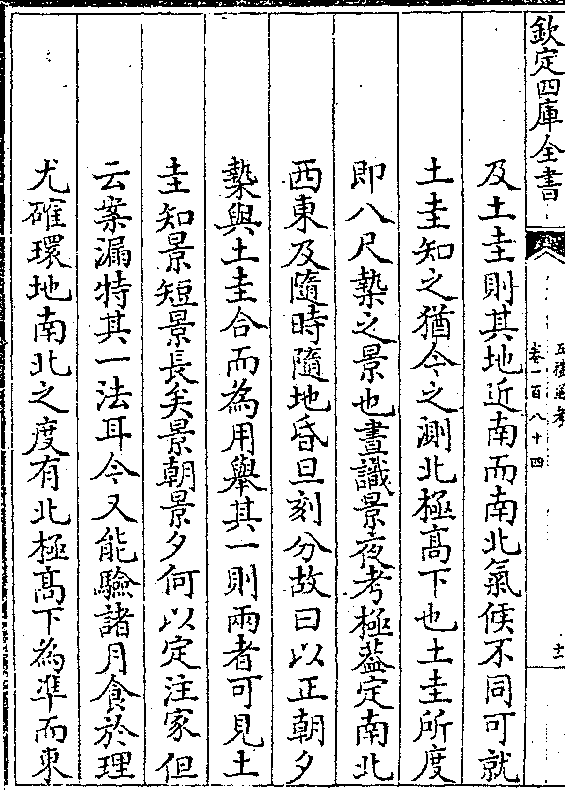 欽定四庫全書
五禮通考
卷一百八十四
十二
及土圭則其地近南而南北氣候不同可就
土圭知之猶今之測北極高下也土圭所度
即八尺槷之景也晝識景夜考極葢定南北
西東及隨時隨地昏旦刻分故曰以正朝夕
槷與土圭合而為用舉其一則兩者可見土
圭知景短景長矣景朝景夕何以定注家但
云案漏特其一法耳今又能驗諸月食於理
尤確環地南北之度有北極高下為準而東